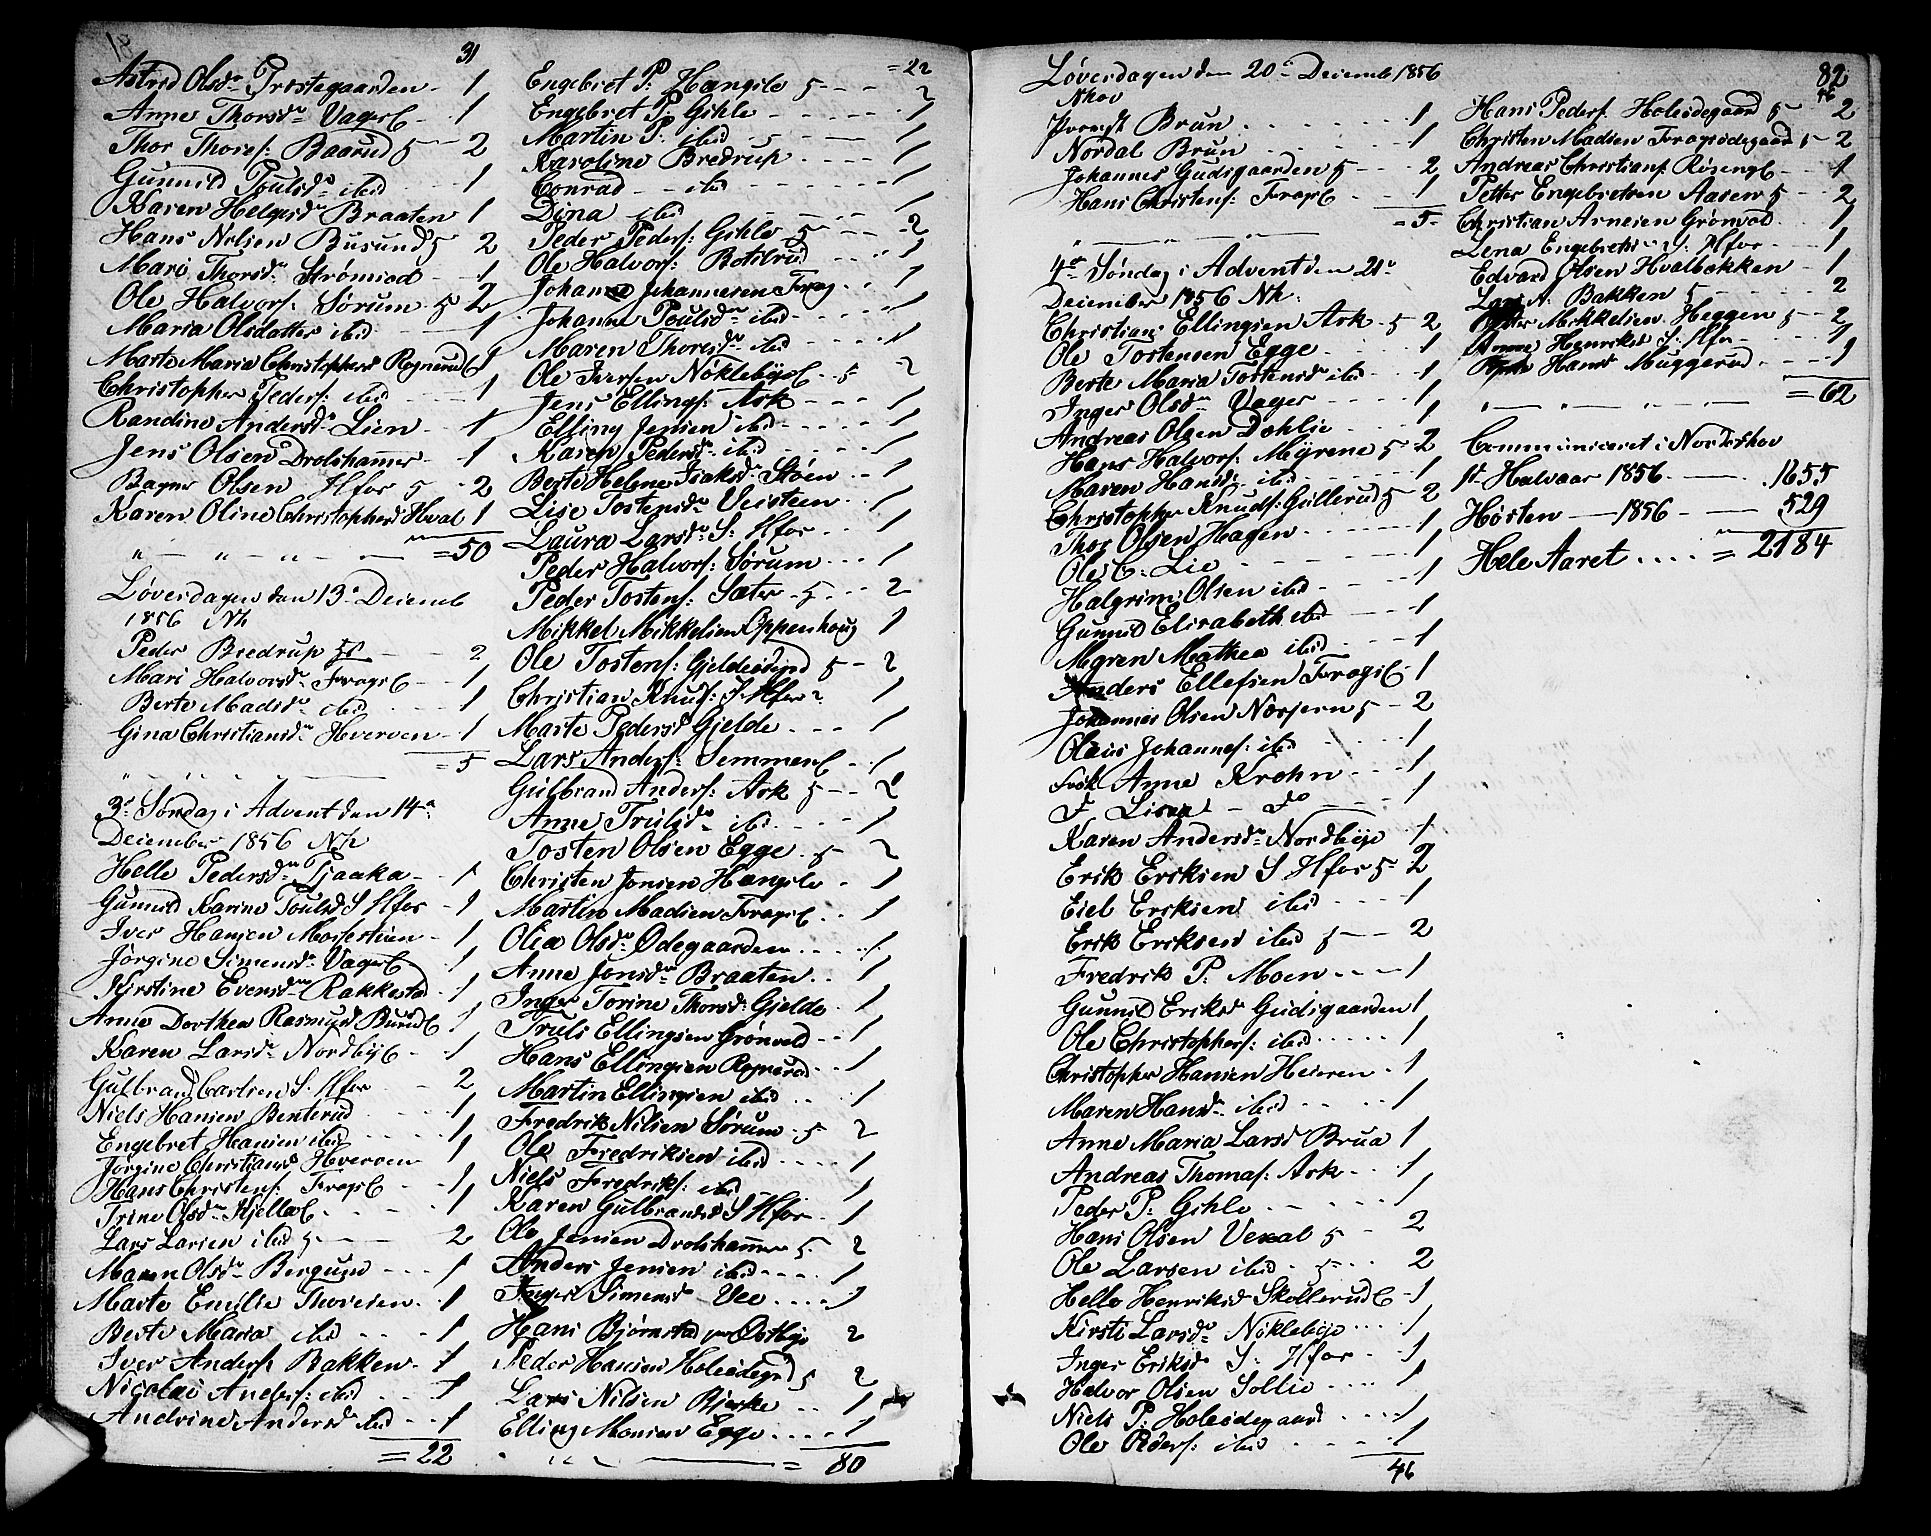 31
Astrid Olsdr Præstegaarden - 1
Anne Thorsdr Vager C - 1
Thor Thores: Baarud 5 - 2
Gunnild Poulsdr ibid - 1
Karen Helgesdr Braaten 1
Hans Nilsen Busund 5 2
Mari Thorsdr Strømsod - 1
Ole Halvors: Sørum - 5 2
Maria Olsdatter ibid - 1
Marte Maria Christophersd Rognerud C 1
Christopher Peders: ibid - 1
Randine Andersdr Lien - 1
Jens Olsen Drolshammer - 1
Bager Olsen Hfos 5 - 2
Karen Oline Christophersd Hval 1
= 50
Løverdagen den 13de Decemb
1856 Nh
Peder Bredrup 5 - 2
Mari Halvorsdr Frogs C - 1
Berte Madsdr ibid - 1
Gina Christiansdr Hverven - 1
= 5
3de Søndag i Advent den 14de
December 1856 Nh
Helle Pedersdr Tjaaka - 1
Gunnild Karine Poulsd S Hfos - 1
Iver Hansen Mosestuen - 1
Jørgine Simensdr Vager C - 1
Kirstine Eversdr Rakkestad - 1
Anne Dorthea Rasmusd Busund C 1
Karen Larsdr Nordby C - 1
Gulbrand Carlsen S. Hfos - 2
Niels Hansen Benterud - 1
Engebret Hansen ibid - 1
Jørgine Christiansd Hverven 1
Hans Christens: Frogs C - 1
Trine Olsdr Hjelle C - 1
Lars Larsen ibid 5 - 2
Maren Olsdr Bergsund - 1
Marte Emilie Thoresen - 1
Berte Maria ibid - 1
Iver Anders: Bakken - 1
Nicolai Anders: ibid - 1
Andrine Andersd ibid - 1
= 22
= 22
Engebret P: Hængsle 5 - 2
Engebret P: Gihle - 1
Martin P: ibid - 1
Karoline Bredrup - 1
Conrad - ibid - 1
Dina ibid - 1
Peder Peders: Gihle 5 - 2
Ole Halvors: Botilrud - 1
Johanne Johannesen Frog - 1
Johanne Poulsdr ibid - 1
Maren Thoresdr ibid - 1
Ole Iversen Nøklebye C - 5 2
Jens Ellings: Ask - 1
Elling Jensen ibid - 1
Karen Pedersdr ibid - 1
Berte Helene Isaksdr Støen - 1
Lise Tostensdr Veisteen - 1
Laura Larsdr S: Hfos - 1
Peder Halvors: Sørum - 1
Peder Tostens: Sæter - 5 - 2
Mikkel Mikkelsen Oppenhoug 1
Ole Tostens: 5 - 2
Christian Knuds: S Hfos - 1
Marte Pedersd Gjelde - 1
Lars Anders: Semmen C - 1
Gulbrand Anders: Ask 5 - 2
Anne Trulsdr ibid - 1
Tosten Olsen Egge - 5 2
Christen Jonsen Hængsle - 1
Martin Madsen Frogs C - 1
Olea Olsdr Ødegaarden - 1
Anne Jonsdr Braaten - 1
Inger Torine Thorsd: Gjelde - 1
Truls Ellingsen Grønvold - 1
Hans Ellingsen Rognerud - 1
Martin Ellingsen ibid - 1
Fredrik Nilsen Sørum - 5 2
Ole Fredriksen ibid - 1
Niels Fredriks: ibid 1
Karen Gulbrandsd S Hfos - 1
Ole Jensen Drolshammer 5 - 2
Anders Jensen ibid - 1
Inger Simensd Vee - 1
Hans Bjørnstad Østbye 2
Peder Hansen Holesdegrd 5 2
Lars Nilsen Bjerke - 1
Elling Monsen Egge - 1
= 80
Løverdagen den 20de Decemb 1856
Nhov
Provst Brun - 1
Nordal Brun - 1
Johannes Gudsgaarden 5 - 2
Hans Christens: Frogs C - 1
= 5 -
4de Søndag i Advent den 21de
December 1856 Nh:
Christian Ellingsen Ask - 5 2
Ole Tostensen Egge - 1
Berte Maria Tostensd ibid - 1
Inger Olsdr Vager - 1
Andreas Olsen Dohlie - 1
Hans Halvors: Myrene 5 - 2
Maren Hansdr ibid - 1
Christopher Knuds: Gullerud 5 - 2
Thor Olsen Hagen - 1
Ole C: Lie - 1
Halgrim Olsen ibid - 1
Gunnild Elisabeth ibid - 1
Maren Mathea ibid - 1
Anders Ellefsen Frogs C - 1
Johannes Olsen Norjern 5 - 2
Olaus Johannes: ibid - 1
Frøk Anne Krohn - 1
F Lisen - Do - 1
Karen Andersdr Nordbye - 1
Erik Eriksen S Hfos 5 - 2
Eiel Eriksen ibid - 1
Erik Eriksen ibid 5 - 2
Fredrik P: Moen - 1
Gunnild Eriksd Gudsgaarden 1
Ole Christophers: ibid - 1
Christopher Hansen Heieren - 1
Maren Hansdr ibid - 1
Anne Maria Larsd Brua 1
Andreas Thomas: Ask - 1
Peder P: Gihle - 1
Hans Olsen Vexal 5 - 2
Ole Larsen ibid - 5 - 2
Helle Henriksd Skollerud C - 1
Kirsti Larsdr Nøklebye - 1
Inger Eriksd S: Hfos - 1
Halvor Olsen Sollie - 1
Niels P: Holesdegaard - 1
Ole Peders: ibid - 1
46
82
46
Hans Peders: Holesdegaard 5 - 2
Christen Madsen Frogsødegaard 5 - 2
Andreas Christians: Røseng C - 1
Petter Engebretsen Aasen 5 2
Christian Arnesen Grønvold - 1
Lena Engebretsdr S: Hfos - 1
Edvard Olsen Hvalbekken - 1
Lars A: Bakken 5 - 2
Petter Mikkelsen Heggen 5 - 2
Anne Henriksd S: Hfos - 1
Hansd Muggerud - 1
= 62
Communiceret i Norderhov
1st Halvaar 1856 - 1655
Høsten - 1856 - 529
Hele Aaret .... = 2184